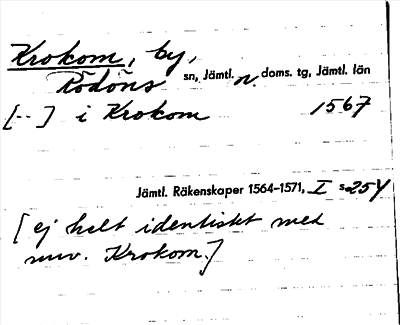 Krokom, by,
Rödöns sn, Jämtl. n. doms. tg, Jämtl. län
[--] i Krokom 1567
Jämtl. Räkenskaper 1564-1571, I s 254
[ej helt identiskt med
nuv. Krokom.]